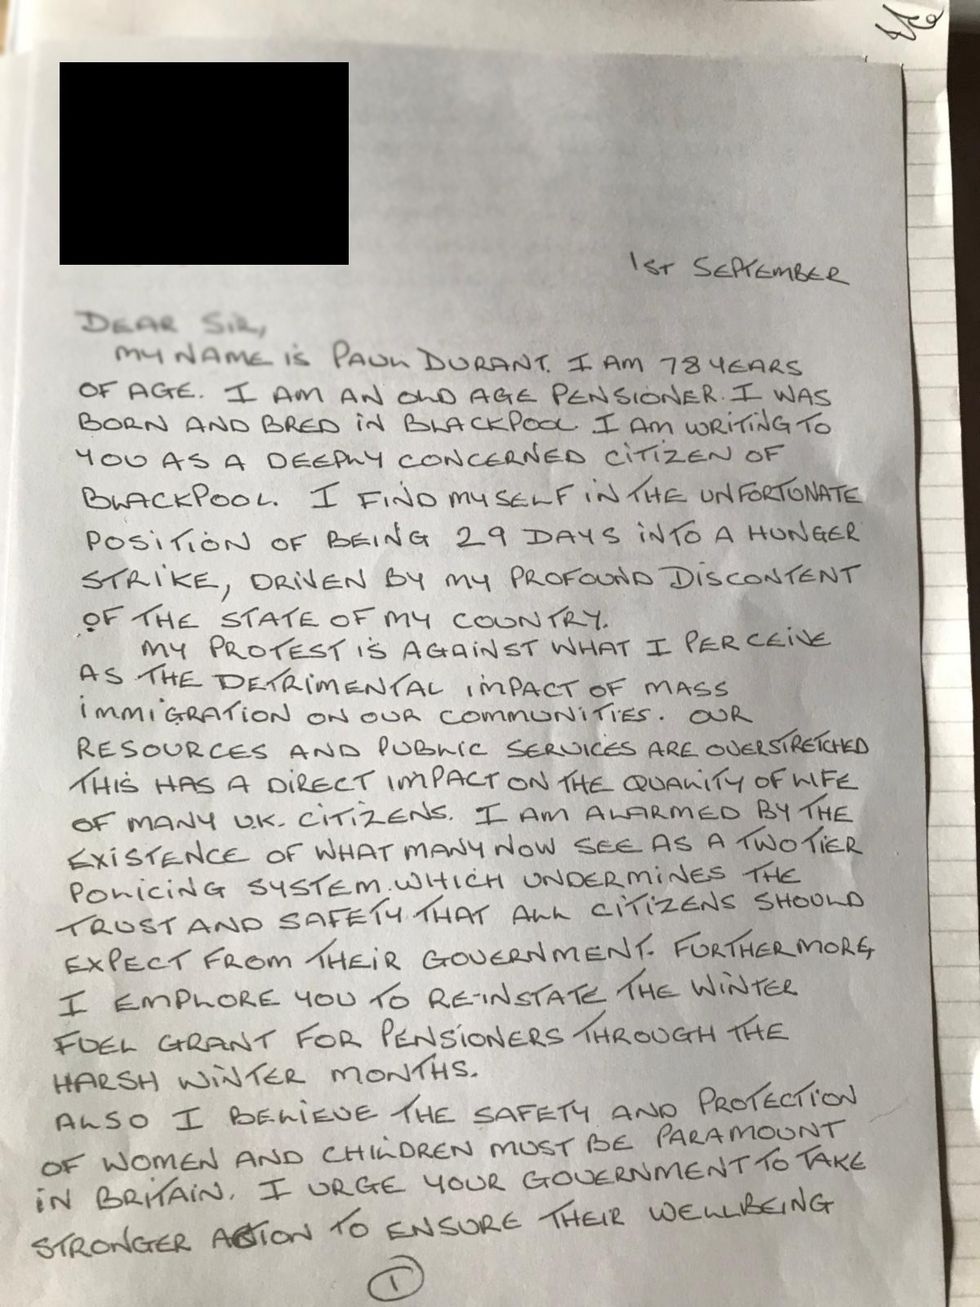 1ST SEPTEMBER
DEAR SIR,
MY NAME IS PAUL DURANT. I AM 78 YEARS
OF AGE. I AM AN OLD AGE PENSIONER. I WAS
BORN AND BRED IN BLACKPOOL. I AM WRITING TO
YOU AS A DEEPLY CONCERNED CITIZEN OF
BLACKPOOL. I FIND MYSELF IN THE UNFORTONATE
POSITION OF BEING 29 DAYS INTO A HUNGER
STRIKE, DRIVEN BY MY PROFOUND DISCONTENT
OF THE STATE OF MY COUNTRY.
MY PROTEST IS AGAINST WHAT I PERCEIVE
AS THE DETRIMENTAL IMPACT OF MASS
IMMIGRATION ON OUR COMMUNITIES. OUR
RESOURCES AND PUBLIC SERVICES ARE OVERSTRETCHED
THIS HAS A DIRECT IMPACT ON THE QUALITY OF LIFE
OF MANY U.K. CITIZENS. I AM ALARMED BY THE
EXISTENCE OF WHAT MANY NOW SEE AS A TWO TIER
POLICING SYSTEM. WHICH UNDERMINES THE
TRUST AND SAFETY THAT ALL CITIZENS SHOULD
EXPECT FROM THEIR GOVERNMENT. FURTHERMORE,
I EMPLORE YOU TO RE-INSTATE THE WINTER
FUEL GRANT FOR PENSIONERS THROUGH THE
HARSH WINTER MONTHS.
ALSO I BELIEVE THE SAFETY AND PROTECTION
OF WOMEN AND CHILDREN MUST BE PARAMOUNT
IN BRITAIN. I URGE YOUR GOVERNMENT TO TAKE
STRONGER ACTION TO ENSURE THEIR WELLBEING
1